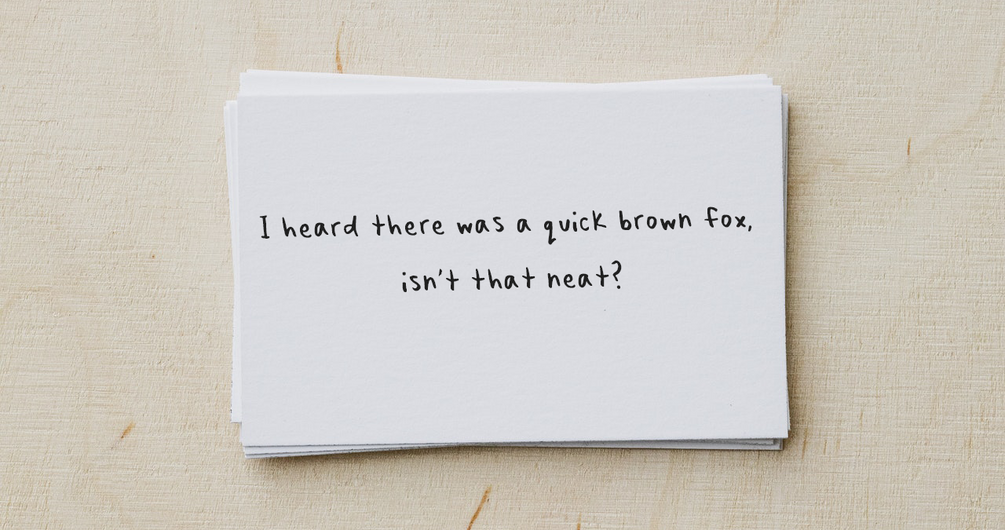 I heard there was a quick brown fox,
isn't that neat?